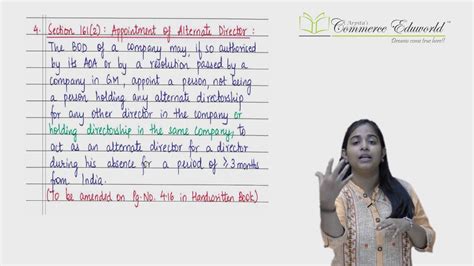 Arpita's
Commerce Eduworld™
Dreams come true here!!
4. Section 161(2): Appointment of Alternate Director:
The BOD of a company may, if so authorised
by its AOA or by a resolution passed by a
company in GM, appoint a person, not being
a person holding any alternate directorship
for any other director in the company or
holding directorship in the same company, to
act as an alternate director for a director
during his absence for a period of ≥ 3 months
from India.
(To be amended on Pg. No. 4.16 in Handwritten Book)